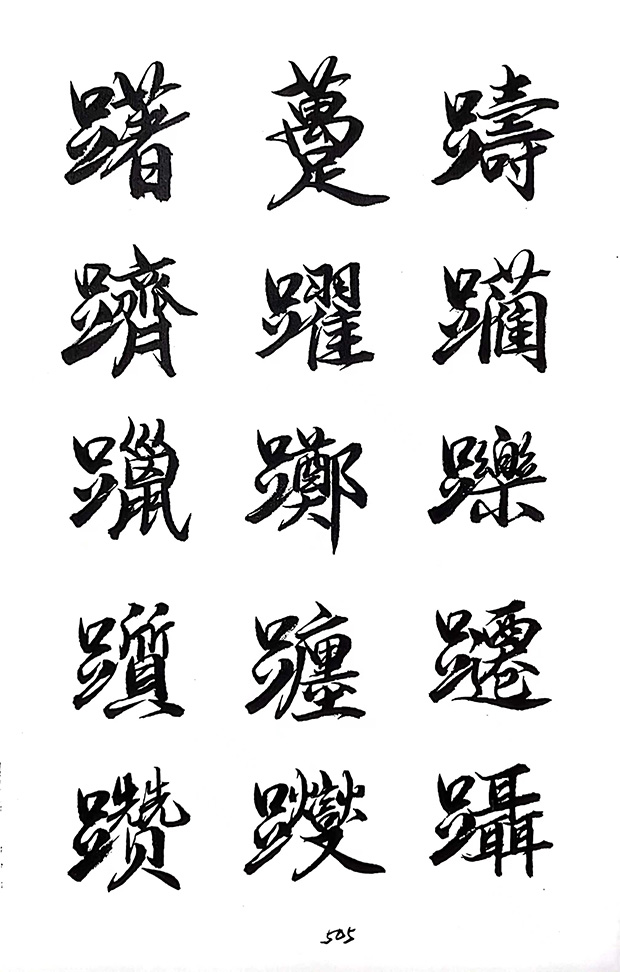 躇 躉 躊
躋 躍 躏
躐 躑 躒
躓 躔 躚
躜 躞 躡
505